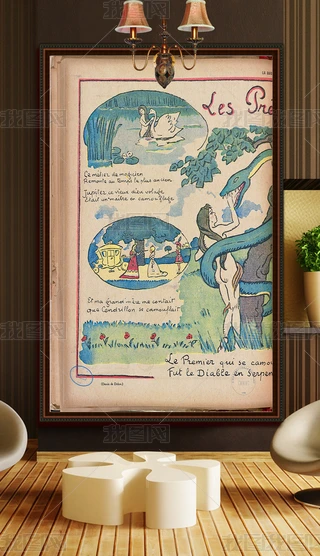 Les Pre
Ce métier de magicien
Remonte au temps le plus ancien
Jupiter ce vieux dieu volage
Etait un maître en camouflage
Et ma grand'mère me contait
que Cendrillon se camouflait
Le Premier qui se camou
Fut le Diable en Serpen